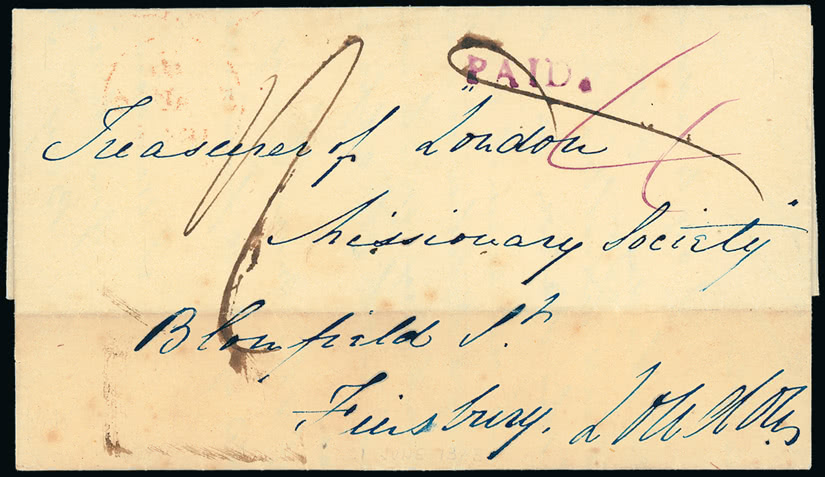 PAID.
4
Treasurer of "London
Missionary Society"
Blomfield St.
Finsbury. London